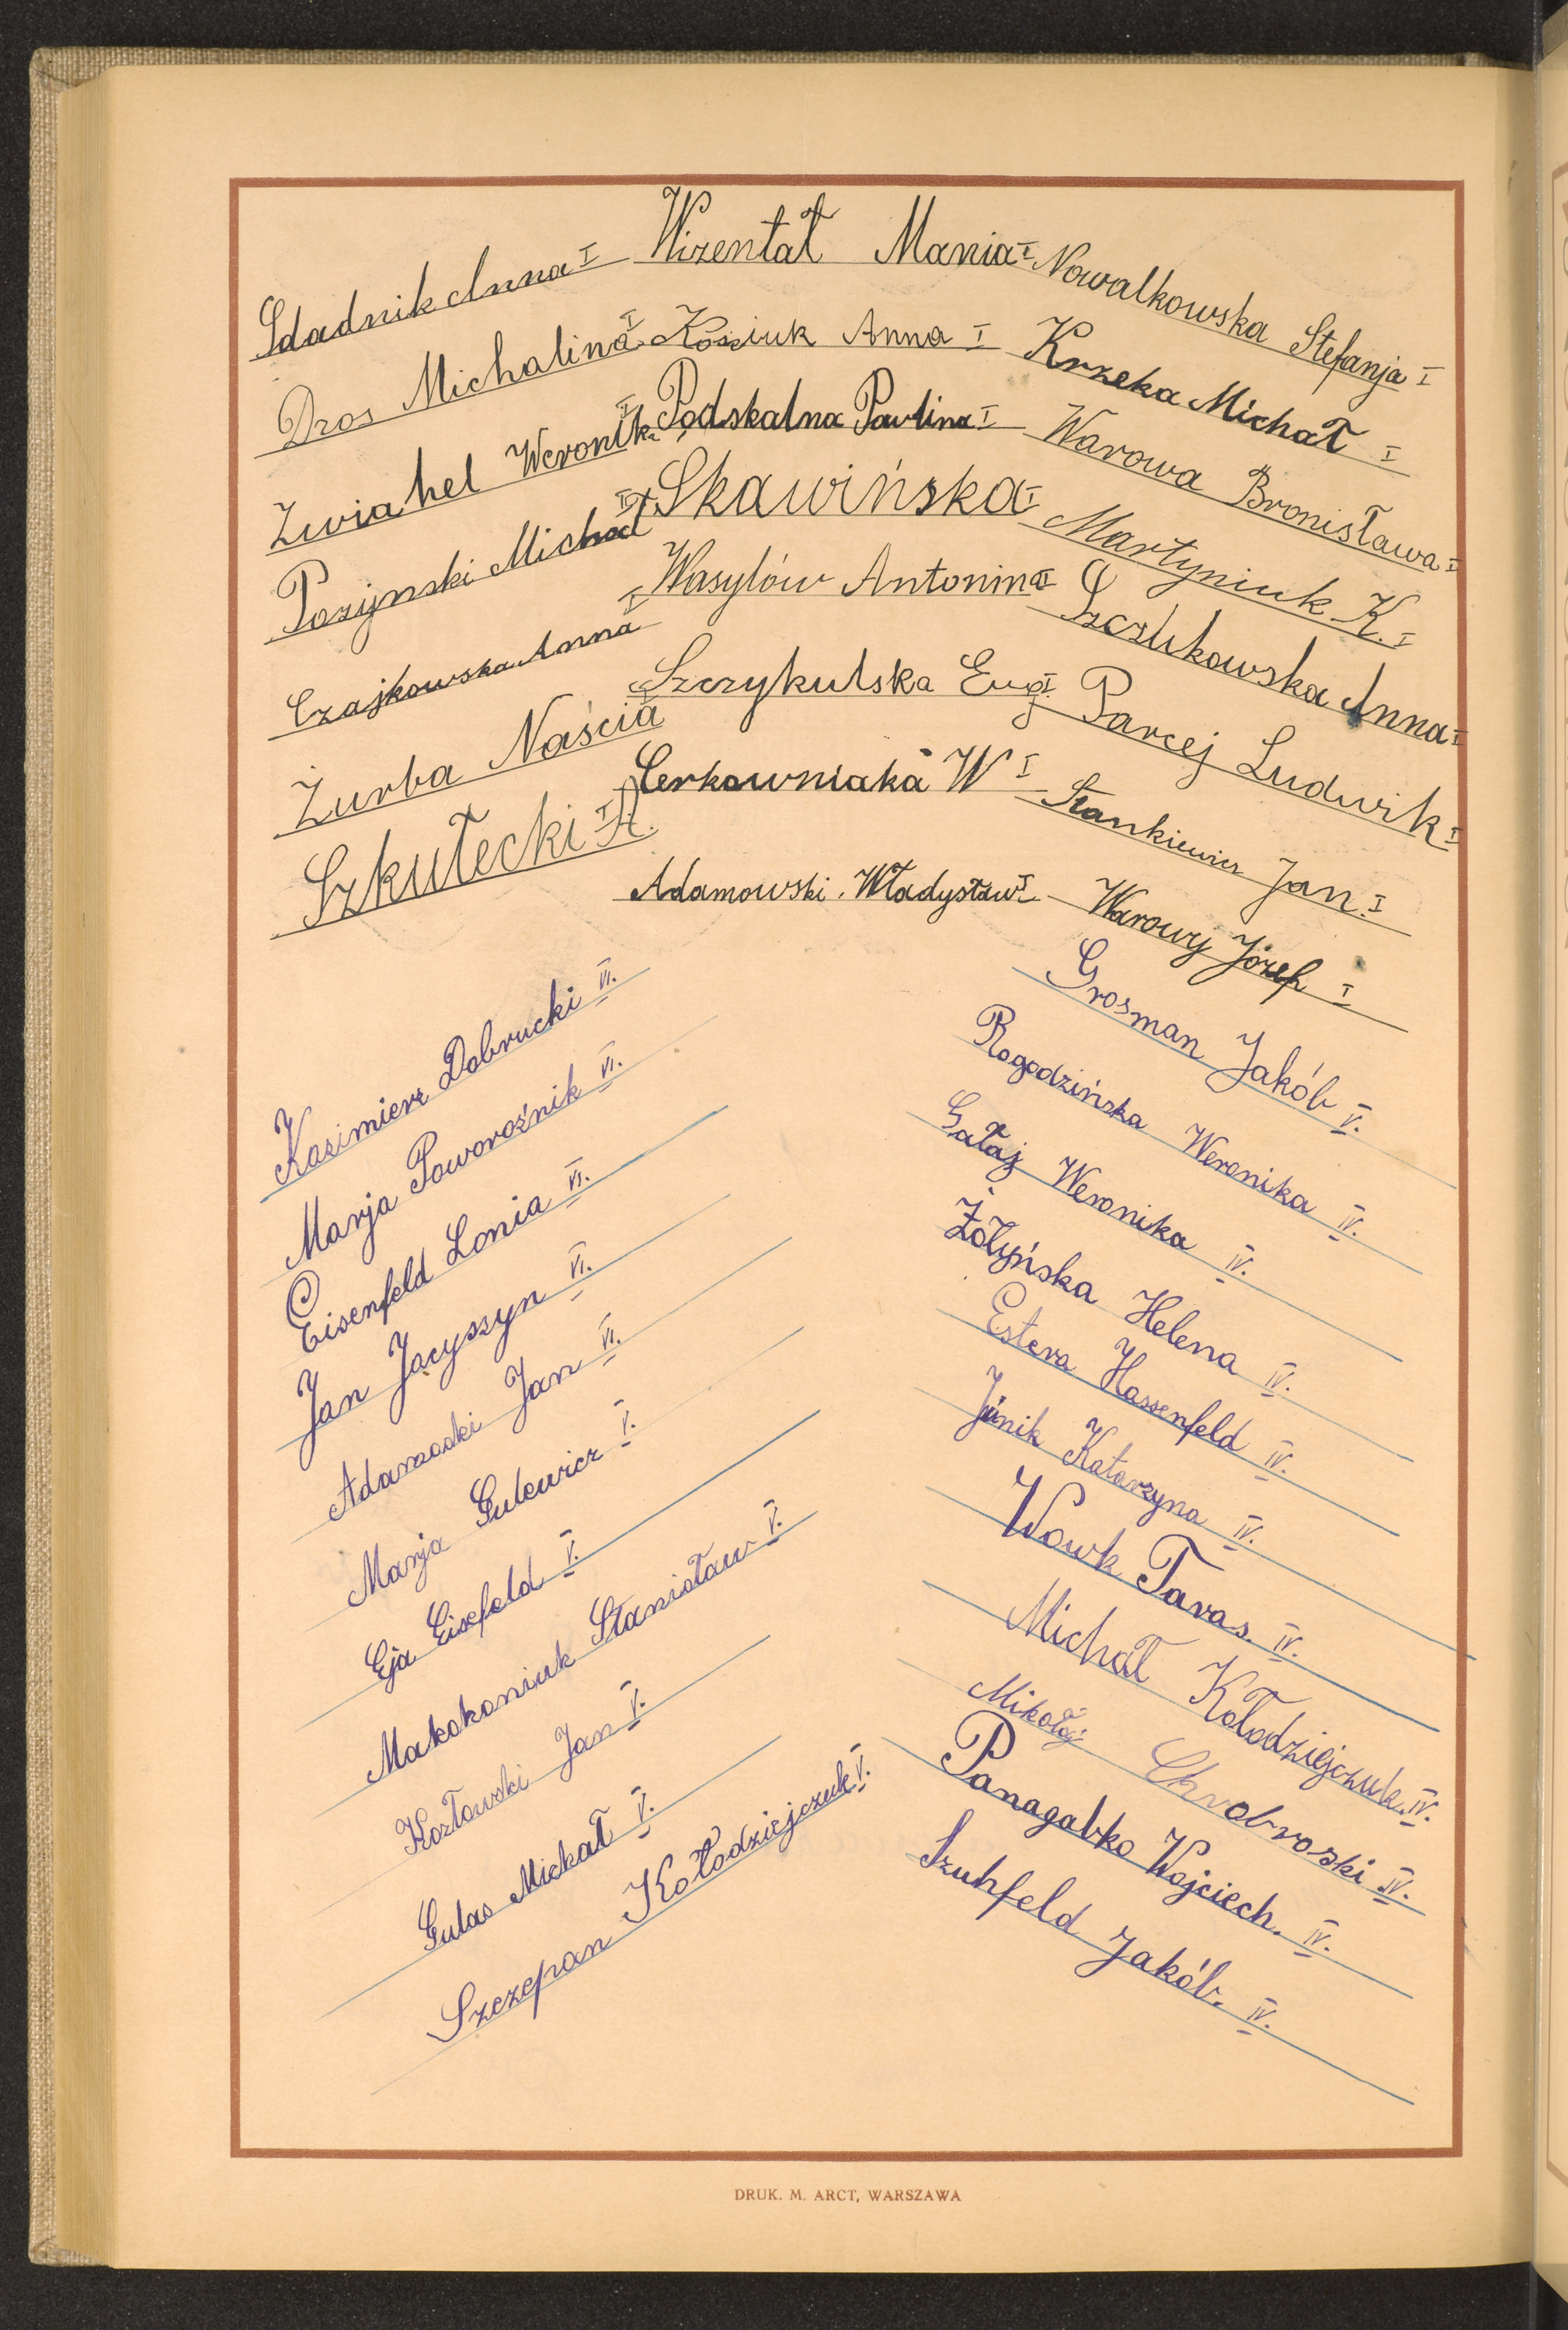 Sdadnik Anna I
Dros Michalina I
Zwiahel Weronika I
Pozynski Michał I
Czajkowska Anna I
Żurba Naścia I
Szkutecki A. I
Wizentał Mania I
Kosciuk Anna I
Podskalna Paulina I
Skawińska I
Wasylów Antonina I
Szczykulska Eug. I
Cerkowniaka W I
Adamowski Władysław I
Nowalkowska Stefanja I
Krzeka Michał I
Warowa Bronisława I
Martyniuk K. I
Anna I
Parcej Ludwik I
Stankiewicz Jan I
Warowy Józef I
Kazimierz Dobrucki VI.
Marja Poworoźnik VI.
Eisenfeld Lonia VI.
Jan Jacyszyn VI.
Adamoski Jan VI.
Marja Gulewicz V.
Eja Eisefeld V.
Makokoniuk Stanisław V.
Kozłowski Jan V.
Gulas Michał V.
Szczepan Kołodziejczuk V.
Grosman Jakób V.
Rogodzińska Weronika IV.
Gałaj Weronika IV.
Żołyńska Helena IV.
Estera Hassenfeld IV.
Janik Katarzyna IV.
Wowk Taras. IV.
Michał Kołodziejczuk. IV.
Mikołaj Chrobroski IV.
Panagabko Wojciech. IV.
Szuhfeld Jakób. IV.
DRUK. M. ARCT, WARSZAWA